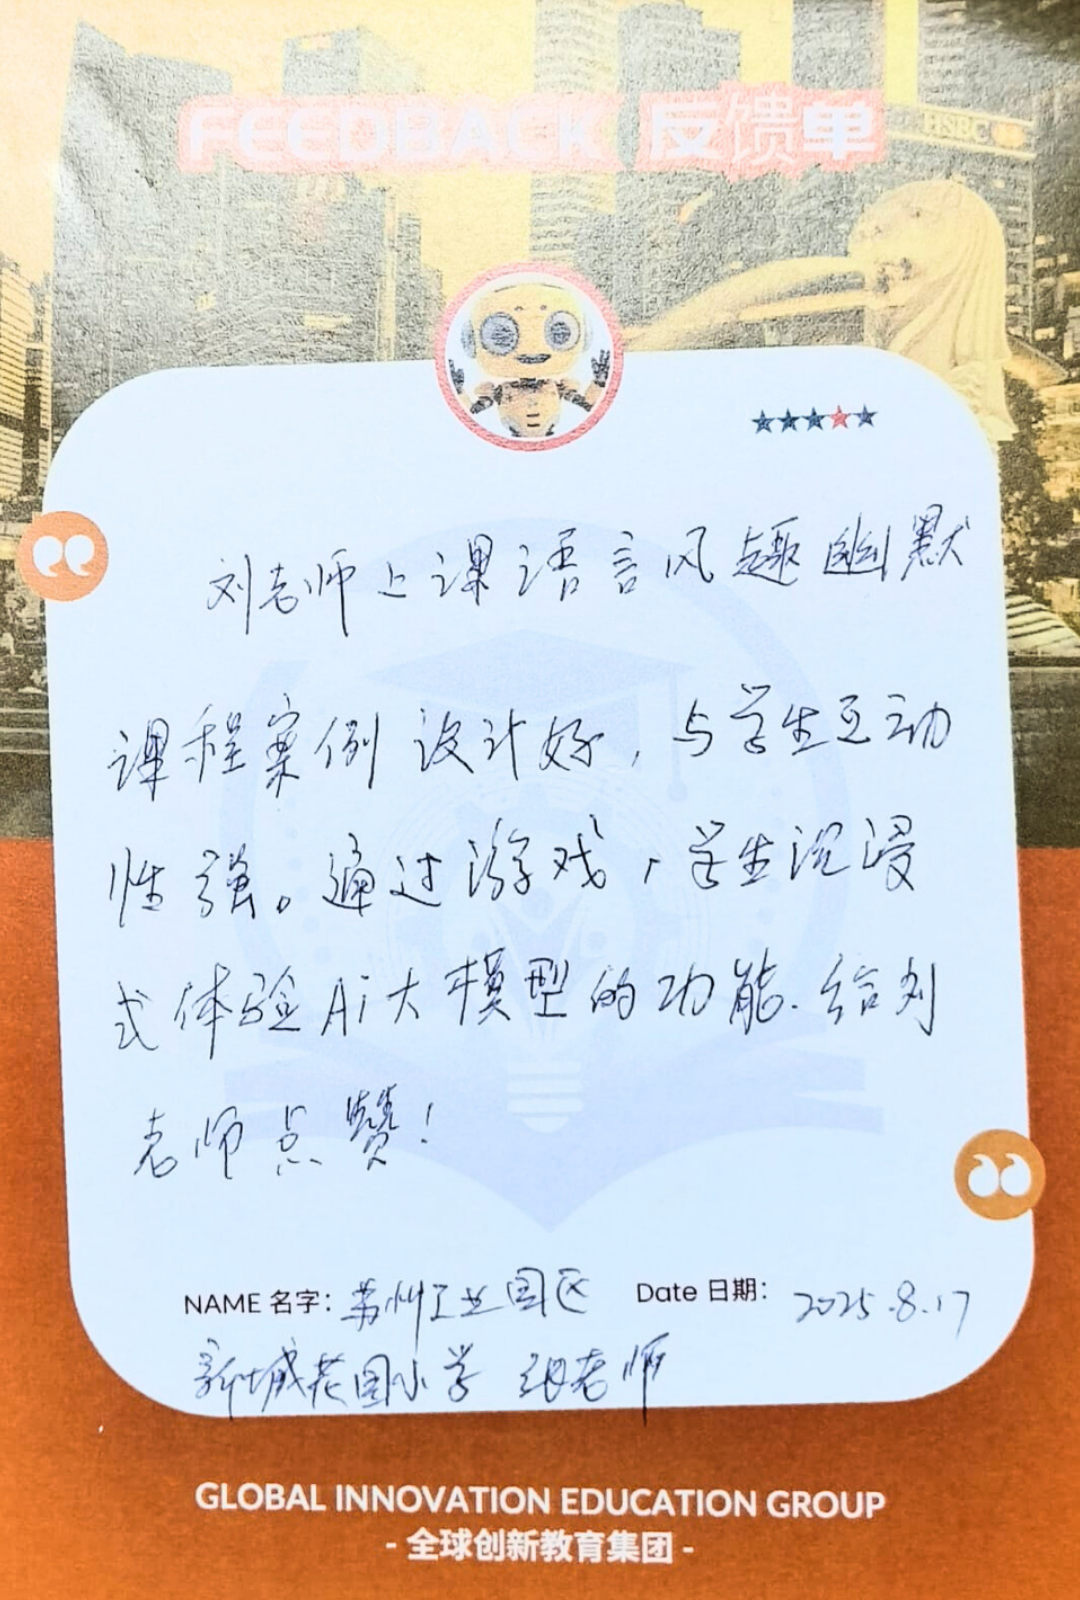 FEEDBACK 反馈单
HSBC
刘老师上课语言风趣幽默
课程案例设计好，与学生互动
性强。通过游戏，学生沉浸
式体验Ai大模型的功能.给刘
老师点赞！
NAME 名字：苏州工业园区 Date 日期：2025.8.17
新城花园小学 张老师
GLOBAL INNOVATION EDUCATION GROUP
- 全球创新教育集团 -